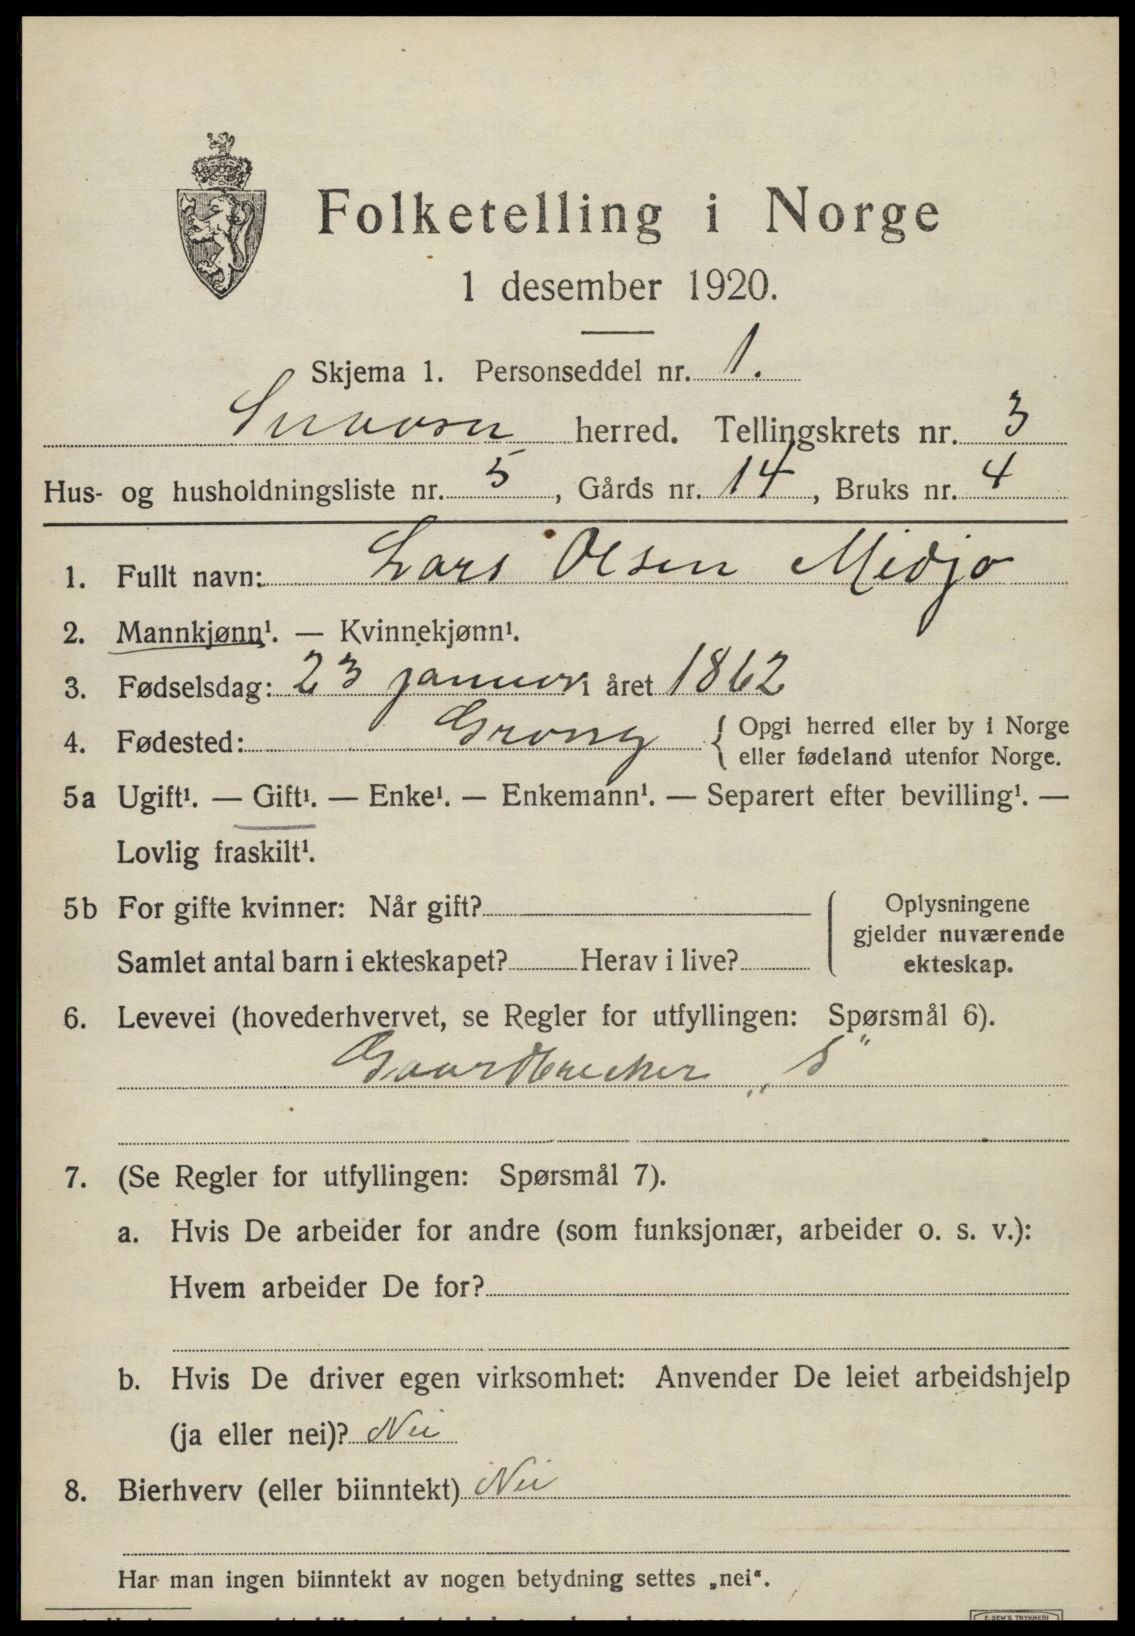 Folketelling i Norge
1 desember 1920.
Skjema 1. Personseddel nr. 1.
Snaasen herred. Tellingskrets nr. 3
Hus- og husholdningsliste nr. 5, Gårds nr. 14, Bruks nr. 4
1. Fullt navn: Lars Olsen Midjo
2. Mannkjønn¹. — Kvinnekjønn¹.
3. Fødselsdag: 23 januar i året 1862
4. Fødested: Grong { Opgi herred eller by i Norge
eller fødeland utenfor Norge.
5a Ugift¹. — Gift¹. — Enke¹. — Enkemann¹. — Separert efter bevilling¹. —
Lovlig fraskilt¹.
5b For gifte kvinner: Når gift?
Samlet antal barn i ekteskapet? Herav i live?
Oplysningene
gjelder nuværende
ekteskap.
6. Levevei (hovederhvervet, se Regler for utfyllingen: Spørsmål 6).
Gaardbruker „S"
7. (Se Regler for utfyllingen: Spørsmål 7).
a. Hvis De arbeider for andre (som funksjonær, arbeider o. s. v.):
Hvem arbeider De for?
b. Hvis De driver egen virksomhet: Anvender De leiet arbeidshjelp
(ja eller nei)? Nei
8. Bierhverv (eller biinntekt) Nei
Har man ingen biinntekt av nogen betydning settes „nei".